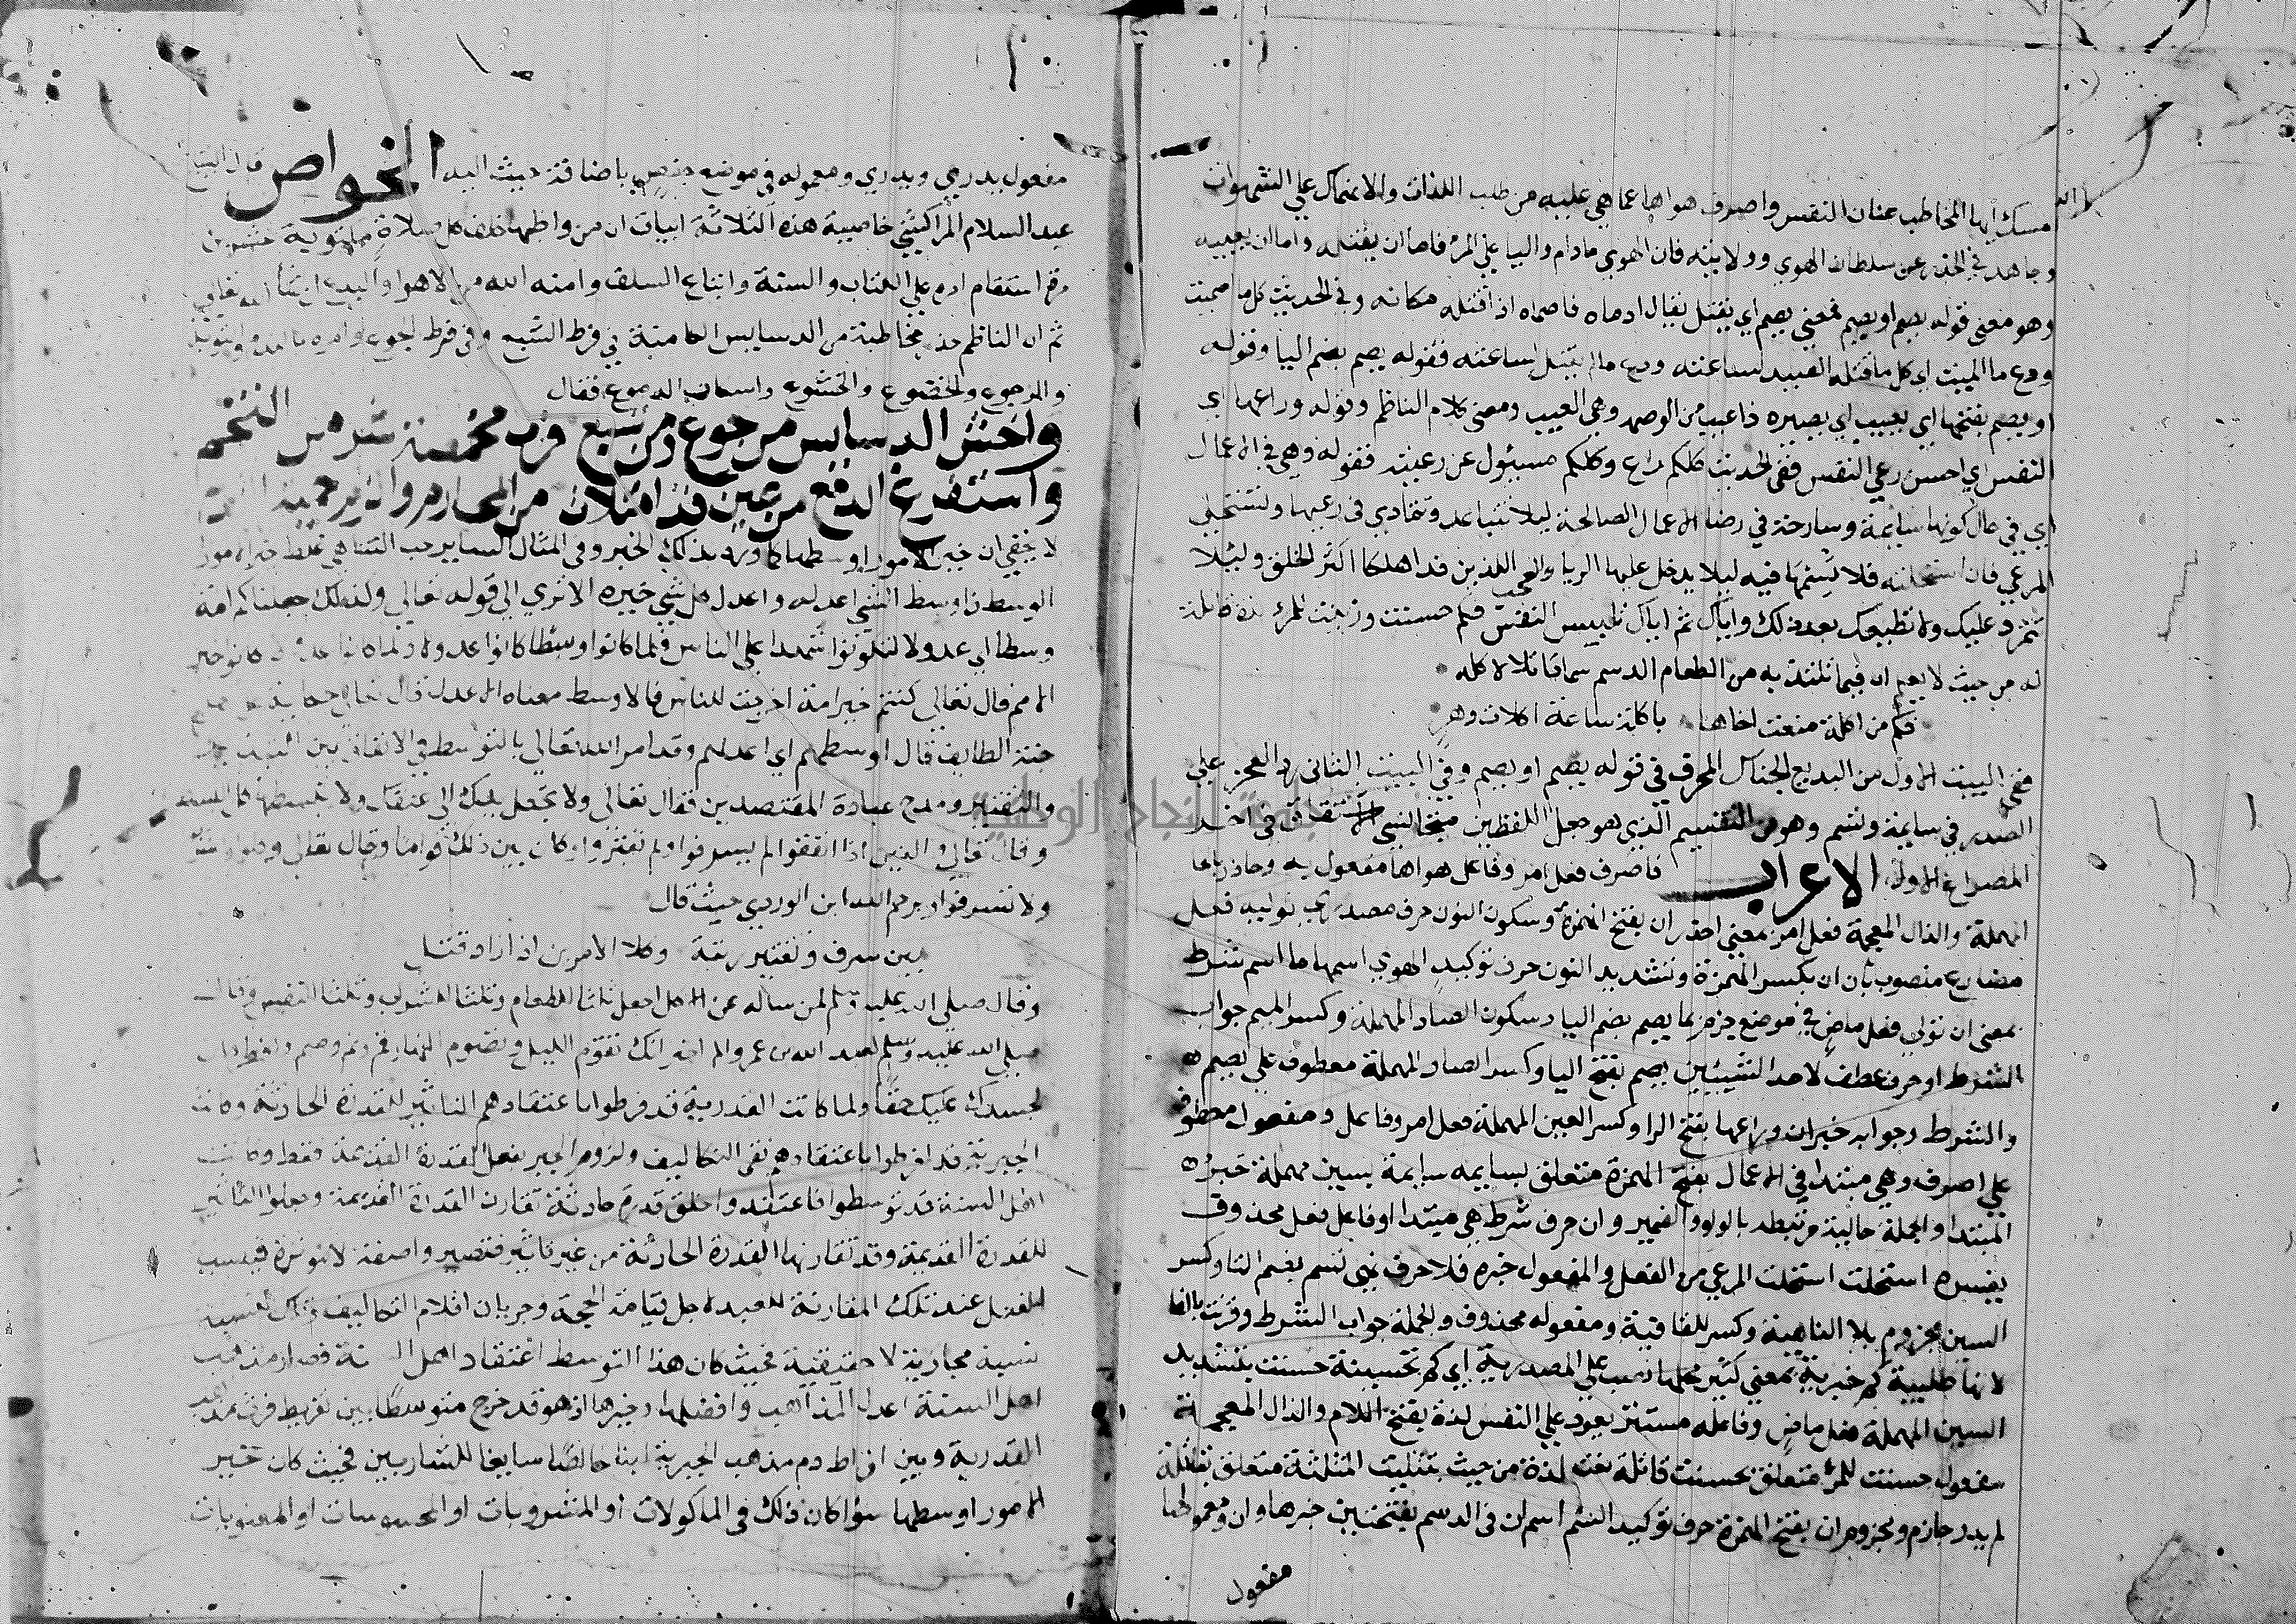 امسك ايها المخاطب عنان النفس واصرف هواها عما هي عليه من طلب اللذات والانهماك علي الشهوات
وجاهد في الحذر عن سلطان الهوي وولايته فان الهوي مادام واليا علي المرء فاما ان يقتله واما ان يعيبه
وهو معنى قوله يصم او يصم فمعني يصم اي يقتل يقال ارماه فاصماه اذا قتله مكانه وفي الحديث كل ما اصميت
ودع ما انميت اي كل ما قتله الصيد لساعته ودع ما لم يقتل لساعته فقوله يصم بضم اليا وقوله
او يصم بفتحها اي يعيب اي يصيره ذا عيب من الوصم وهي العيب ومعنى كلام الناظم وقوله وراعها اي
النفس اي احسن رعي النفس ففي الحديث كلكم راع وكلكم مسيول عن رعيته فقوله وهي في الاعمال
اي في حال كونها سايمة وسارحة في رضا الاعمال الصالحة ليلا تتباعد وتتمادي في رعيها ولتستحلي
المرعي فان استحلته فلا تسمها فيه ليلا يدخل عليها الريا والعجب اللذين قد اهلكا اكثر الخلق وليلا
تتمرد عليك ولا تطيعك بعد ذلك واياك ثم اياك تلبيس النفس فكم حسنت وزينت للمرء لذة قاتلة
له من حيث لا يعلم ان فيما تلتذ به من الطعام الدسم سما قاتلا لاكله
فكم من اكلة منعت اخاها باكلة ساعة اكلات دهر
ففي البيت الاول من البديع الجناس المحرف في قوله يصم او يصم وفي البيت الثاني رد العجز علي
الصدر في سايمة وتسم وهو من التقسيم الذي هو جعل اللفظين الاشتقاق في اخر
المصراع الاول الاعراب فاصرف فعل امر وفاعل هواها مفعول به وحاذر بالحا
المهملة والذال المعجمة فعل امر بمعني احذر ان بفتح الهمزة وسكون النون حرف مصدري توليه فعل
مضارع منصوب بان ان بكسر الهمزة وتشديد النون حرف توكيد الهوي اسمها ما اسم شرط
بمعنى ان تولي فعل ماض في موضع جزم بما يصم بضم اليا وسكون الصاد المهملة وكسر الميم جواب
الشرط او حرف عطف لاحد الشييين يصم بفتح اليا وكسر الصاد المهملة معطوف علي يصم
والشرط وجوابه خبر ان وراعها بفتح الرا وكسر العين المهملة فعل امر وفاعل ومفعول معطوف
علي اصرف وهي مبتدا في الاعمال بفتح الهمزة متعلق بسايمه سايمة بسين مهملة خبر
المبتدا والجملة حالية مرتبطه بالواو والضمير وان حرف شرط هي مبتدا او فاعل بفعل محذوف
يفسره استحلت استحلت المرعي من الفعل والمفعول خبره فلا حرف نهي تسم بضم التا وكسر
السين مجزوم بلا الناهية وكسر للقافية ومفعوله محذوف والجملة جواب الشرط وقرنت بالفا
لانها طلبية كم خبرية بمعني كثير محلها نصب علي المصدرية اي كم تحسينة حسنت بتشديد
السين المهملة فعل ماض وفاعله مستتر يعود علي النفس لذة بفتح اللام والذال المعجمة
مفعول حسنت للمرء متعلق بحسنت قاتلة نعت لذة من حيث بتثليث المثلثة متعلق بقاتلة
لم يدر جازم ومجزوم ان بفتح الهمزة حرف توكيد السم اسم ان في الدسم بفتحتين خبرها وان ومعمولها
مفعول
مفعول يدري ويدري ومعموله في موضع خفض باضافة حيث اليه الخواص قال الشيخ
عبد السلام المراكشي خاصية هذه الثلاثة ابيات ان من واظبها خلف كل صلاة
مرة استقام امره علي الكتاب والسنة واتباع السلف وامنه الله من الاهوا والبدع ان شا الله تعالي
ثم ان الناظم مخاطبه من الدسايس الكامنة في فرط الشبع وفي فرط الجوع وامره بالندم والتوبة
والرجوع والخضوع والخشوع واسكاب الدموع فقال
واخش الدسايس من جوع ومن شبع فرب مخمصة شر من التخم
واستفرغ الدمع من عين قد امتلات من المحارم والزم حمية الندم
لا يخفي ان خير الامور اوسطها كما ورد بذلك الخبر وفي المثال الساير حب التناهي غلط خير الامور
الوسط فاوسط الشي اعدله واعدل كل شي خيره الا تري الي قوله تعالي وكذلك جعلناكم امة
وسطا اي عدولا لتكونوا شهدا علي الناس فلما كانوا وسطا كانوا عدولا ولما كانوا عدولا كانوا خير
الامم قال تعالي كنتم خير امة اخرجت للناس فالاوسط معناه الاعدل قال تعالي حكاية عن
جنة الطايف قال اوسطهم اي اعدلهم وقد امر الله تعالي بالتوسط في الانفاق بين
والتقتير ومدح عباده المقتصدين فقال تعالى ولا تجعل يدك الي عنقك ولا تبسطها كل البسط
وقال تعالي والذين اذا انفقوا لم يسرفوا ولم يقتروا وكان بين ذلك قواما وقال تعالي وكلوا واشربوا
ولا تسرفوا ورحم الله ابن الوردي حيث قال
بين سرف وتقتير رتبة وكلا الامرين اذا زاد قتل
وقال صلي الله عليه وسلم لمن ساله عن الاكل اجعل ثلثا للطعام وثلثا للشراب وثلثا للنفس وقال
صلي الله عليه وسلم لعبد الله بن عمرو الم اخبر انك تقوم الليل وتصوم النهار قم ونم وصم وافطر فان
لجسدك عليك حقا ولما كانت القدرية قد فرطوا باعتقادهم التاثير للقدرة الحادثة وكانت
الجبرية قد افرطوا باعتقادهم نفي التكاليف ولزوم الجبر بفعل القدرة القديمة فقط وكانت
اهل السنة قد توسطوا فاعتقدوا خلق قدرة حادثة تقارن القدرة القديمة وجعلوا التاثير
للقدرة القديمة وقد تقارنها القدرة الحادثة من غير تاثير فتصير واصفة لا موثرة فينسب
الفعل عند تلك المقارنة للعبد لاجل قيامة الحجة وجريان اقلام التكاليف وتلك النسبة
نسبة مجازية لا حقيقية فحيث كان هذا التوسط اعتقاد اهل السنة فصار مذهب
اهل السنة اعدل المذاهب وافضلها وخيرها اذ هو قد خرج متوسطا بين تفريط فرث مذهب
القدرية وبين افراط دم مذهب الجبرية لبنا خالصا سايغا للشاربين فحيث كان خير
الامور اوسطها سوا كان ذلك في الماكولات او المشروبات او المحسوسات او المعنويات